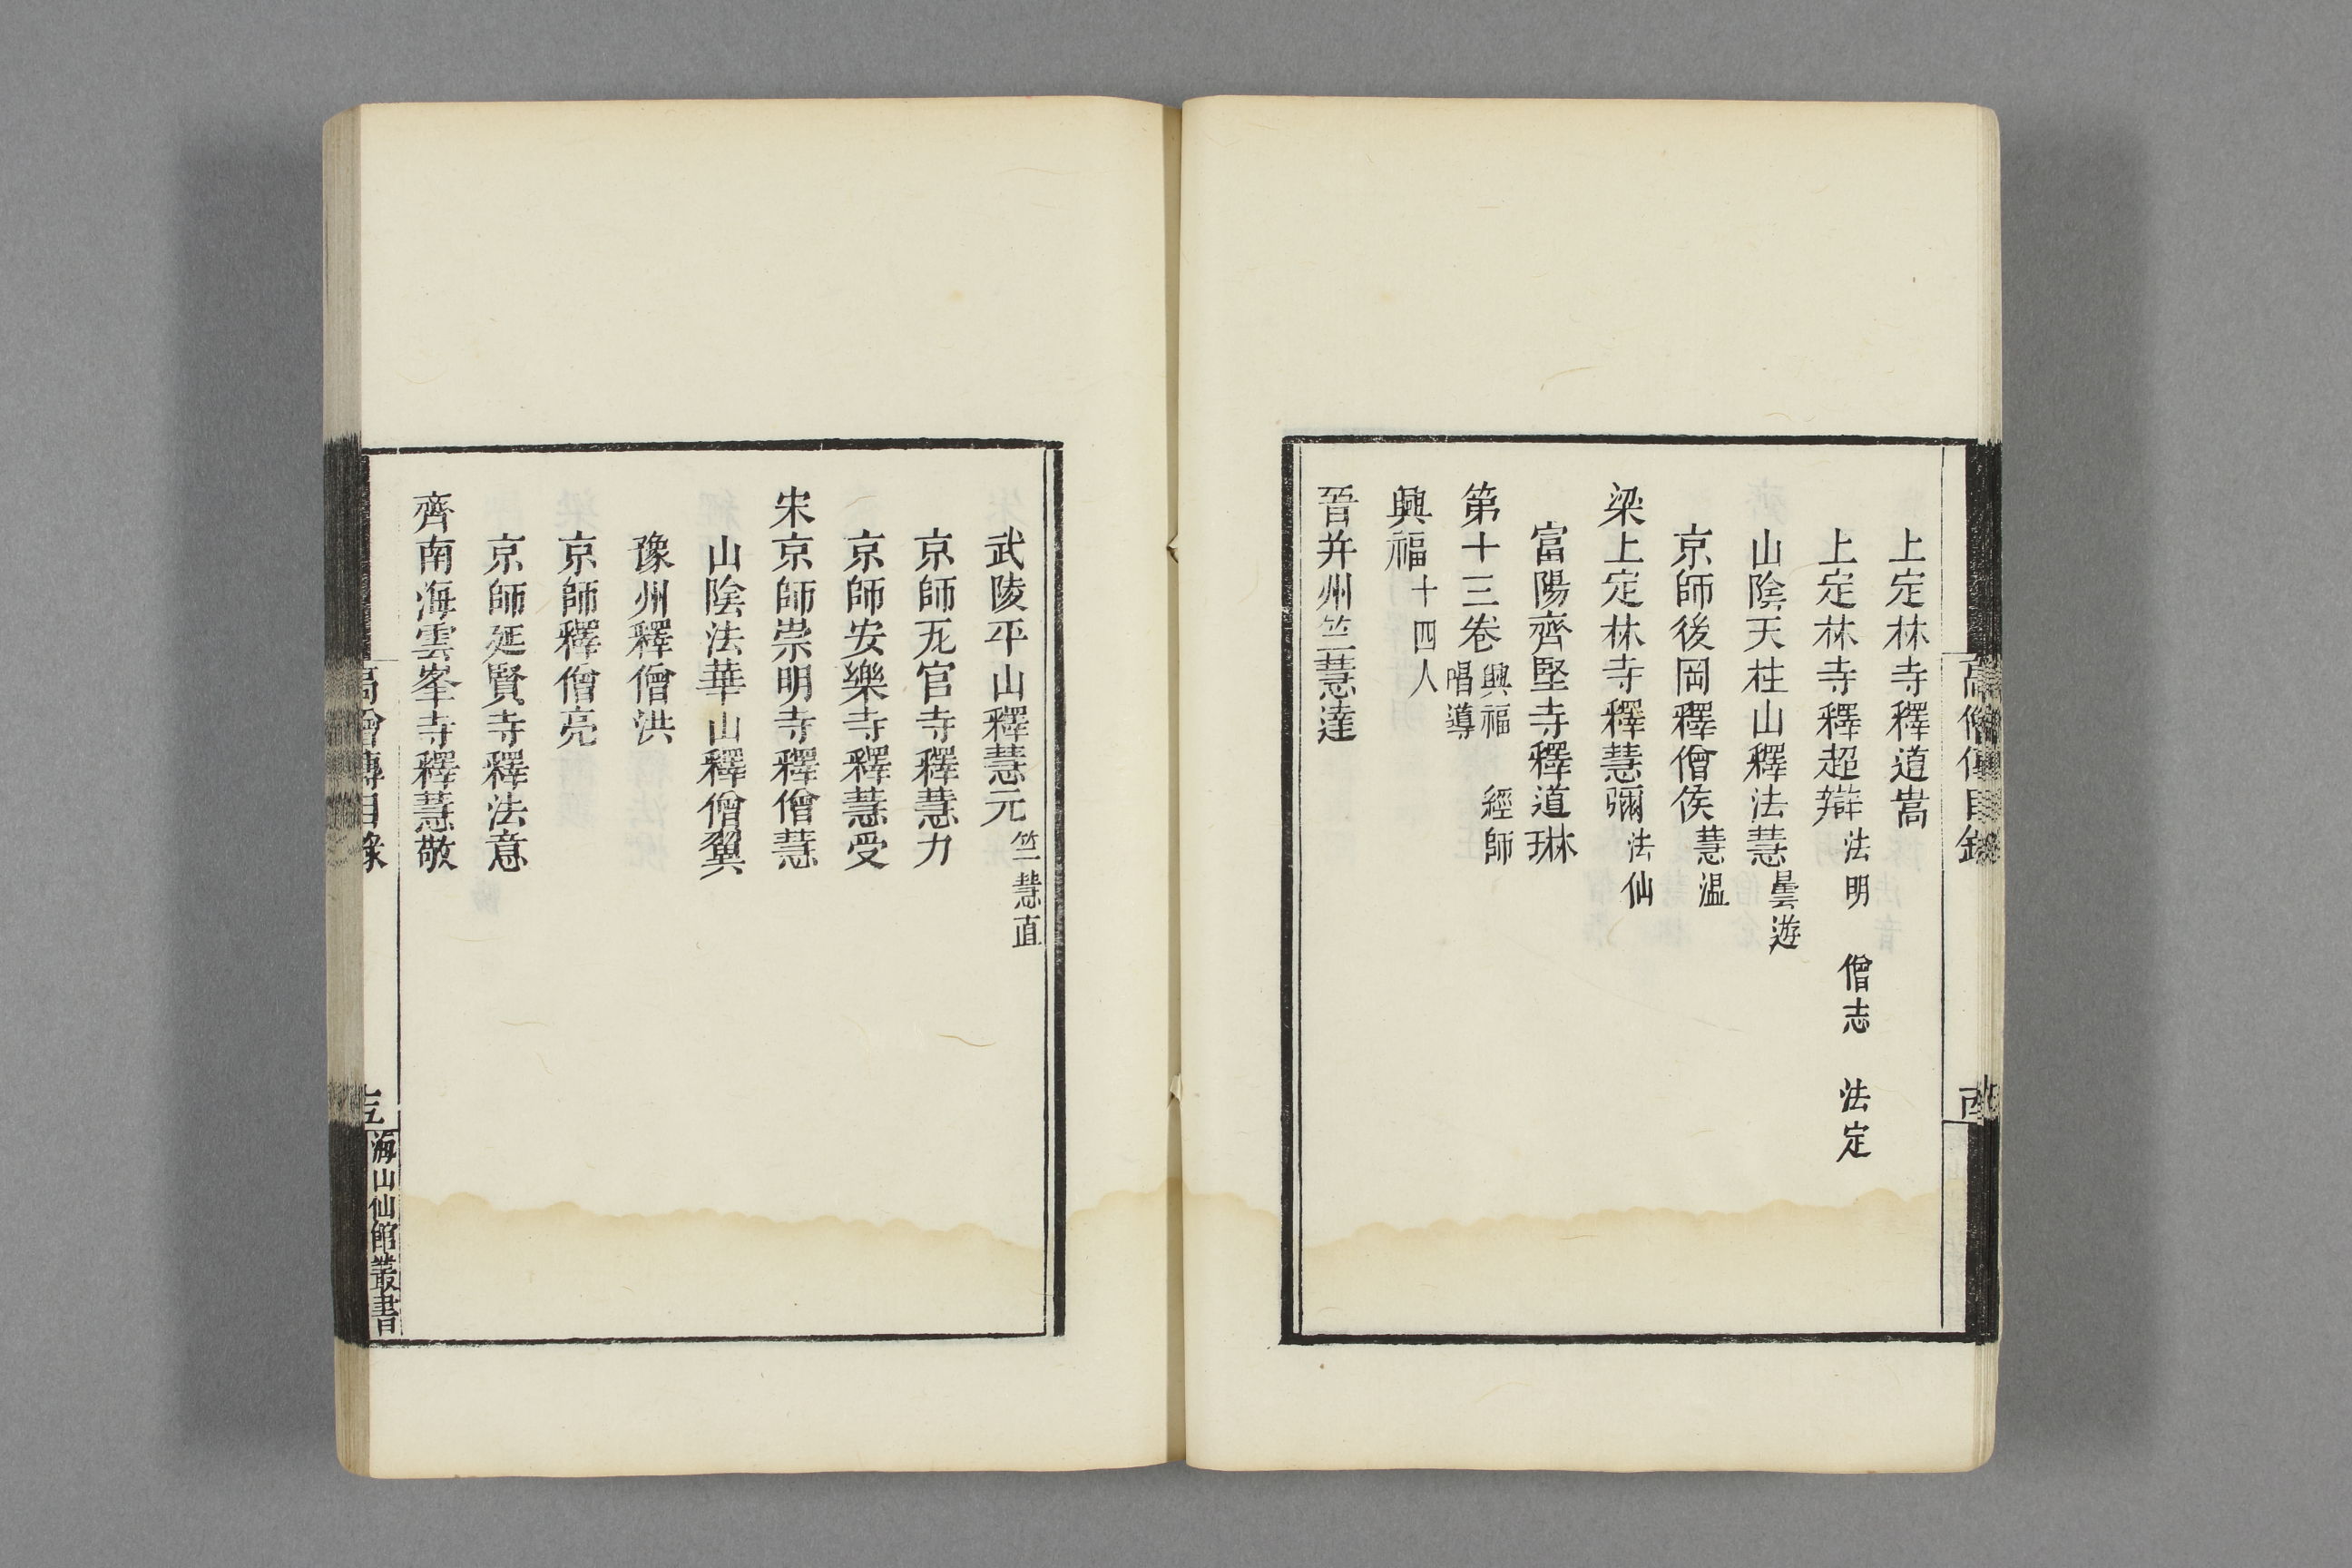 上定林寺釋道嵩
上定林寺釋超辯 法明 僧志 法定
山陰天柱山釋法慧 曇遊
京師後岡釋僧侯 慧温
梁上定林寺釋慧彌 法仙
富陽齊堅寺釋道琳
第十三卷 興福 經師 唱導
興福 十四人
晉并州竺慧達
武陵平山釋慧元 竺慧直
京師瓦官寺釋慧力
京師安樂寺釋慧受
宋京師崇明寺釋僧慧
山陰法華山釋僧翼
豫州釋僧洪
京師釋僧亮
京師延賢寺釋法意
齊南海雲峯寺釋慧敬
高僧傳目錄
海山仙館叢書